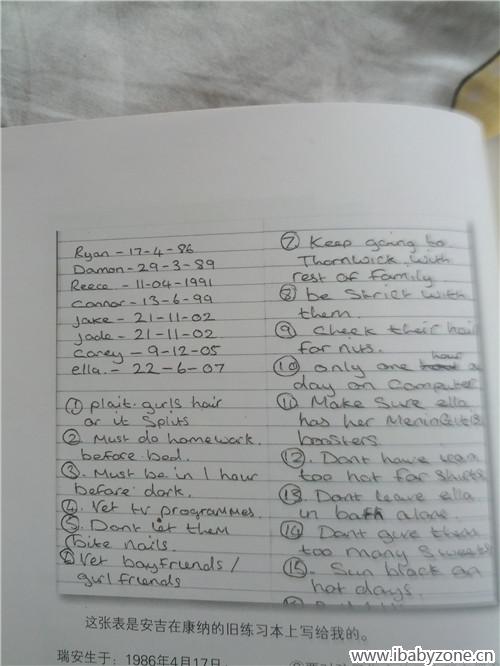 Ryan - 17-4-86
Damon - 29-3-89
Reece - 11-04-1991
Connor - 13-6-99
Jake - 21-11-02
Jade - 21-11-02
Corey - 9-12-05
ella. - 22-6-07
① plait. girls hair
or it splits
② Must do homework.
before bed.
③. Must be in 1 hour
before dark.
④. Vet tv programmes.
⑤. Dont let them
bite nails.
⑥ Vet boyfriends /
girl friends
⑦ Keep going to
Thornwick with
rest of family
⑧ be Strict with
them.
⑨ Check their hair
for nits.
⑩ only one hour a
day on Computer
⑪ Make Sure ella
has her Meningitis
boosters
⑫. Dont have iron
too hot for shirts
⑬ Dont leave ella
in bath alone.
⑭ Dont give them
too many Sweets
⑮. Sun block on
hot days.
这张表是安吉在康纳的旧练习本上写给我的。
瑞安生于：1986年4月17日
www.ibabyzone.cn